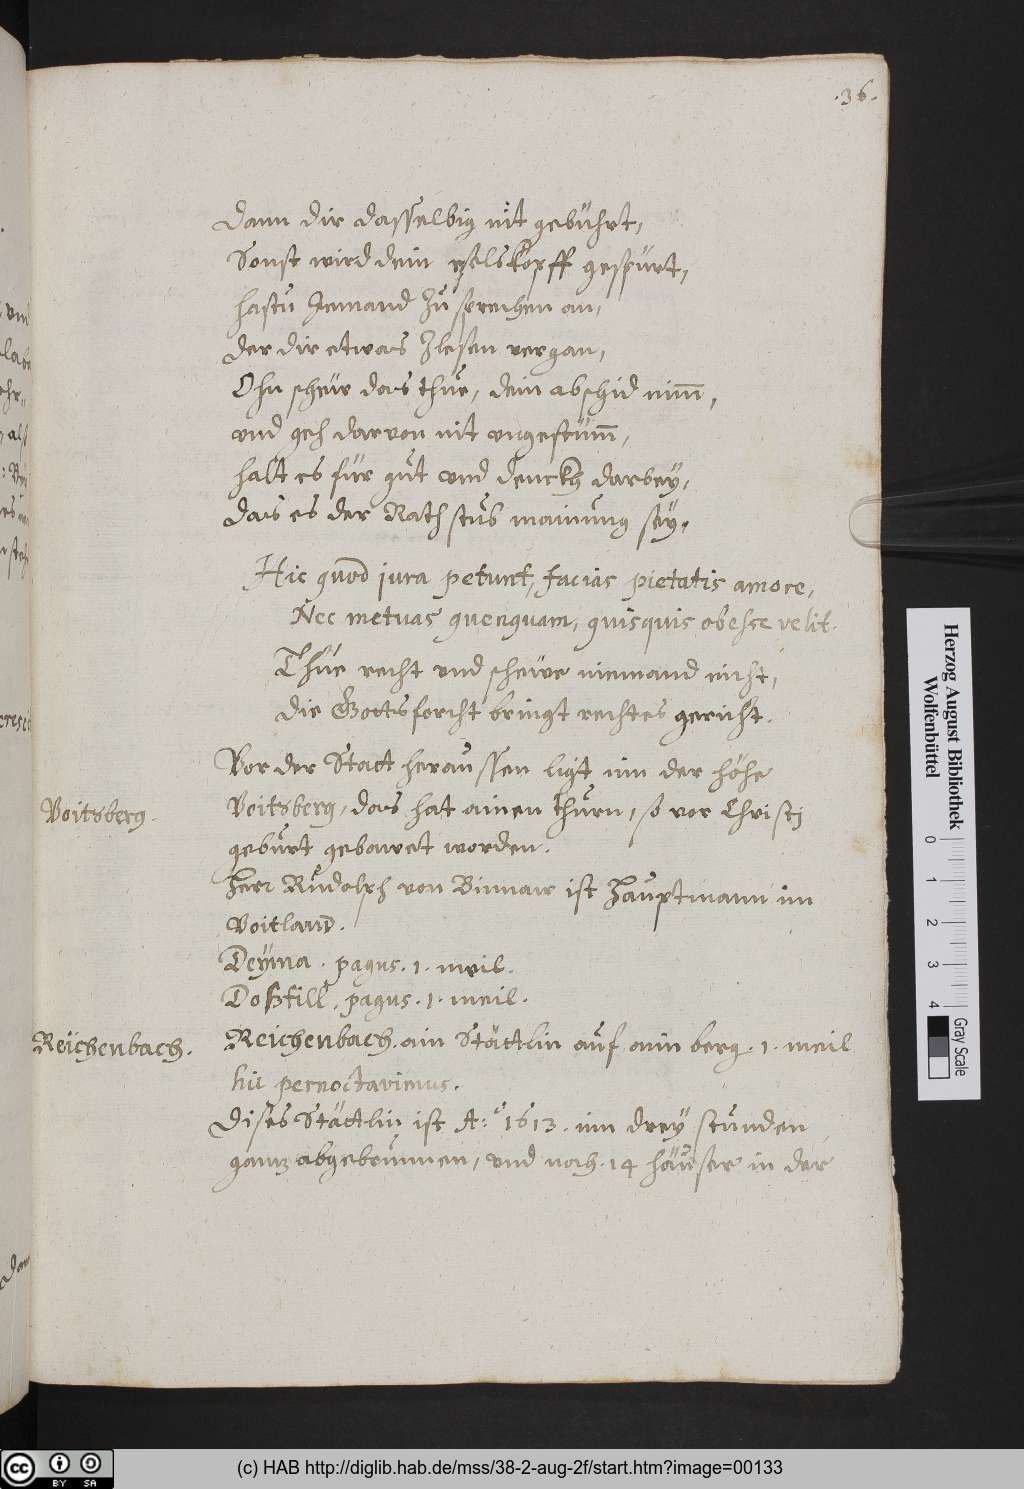 .36.
Dann dir dasselbig nit gebührt,
Sonst wird dein eselskopff gespürt,
hastu Jemand zu sprechen an,
der dir etwas Zlesen vergan,
Ohn scheür das thue, dein abschid nim̄,
vnd geh darvon nit vngestüm̄,
halt es für gut vnd denckh darbey,
das es der Rathstub mainung seÿ,
Hic quod jura petunt, facias pietatis amore,
Nec metuas quenquam, quisquis obesse velit.
Thue recht vnd scheüe niemand nicht,
die Gottsforcht bringt rechtes gericht.
Vor der Statt heraussen ligt inn der höhe
Voitsberg.
Voitsberg, das hat ainen thurn, so vor Christj
geburt gebawet worden.
Herr Rudolph von Binnaw ist Hauptmann im
Voitland.
Deÿma. pagus. 1. meil.
Doßfill. pagus. 1. meil.
Reichenbach.
Reichenbach. ain Stättlin auf ainn berg. 1. meil
hic pernoctavimus.
Dises Stättlin ist A.º 1613. inn dreÿ stunden
ganz abgebrunnen, vnd noch 14 häuser in der
Herzog August Bibliothek
Wolfenbüttel
0 1 2 3 4
Gray Scale
cc BY SA
(c) HAB http://diglib.hab.de/mss/38-2-aug-2f/start.htm?image=00133